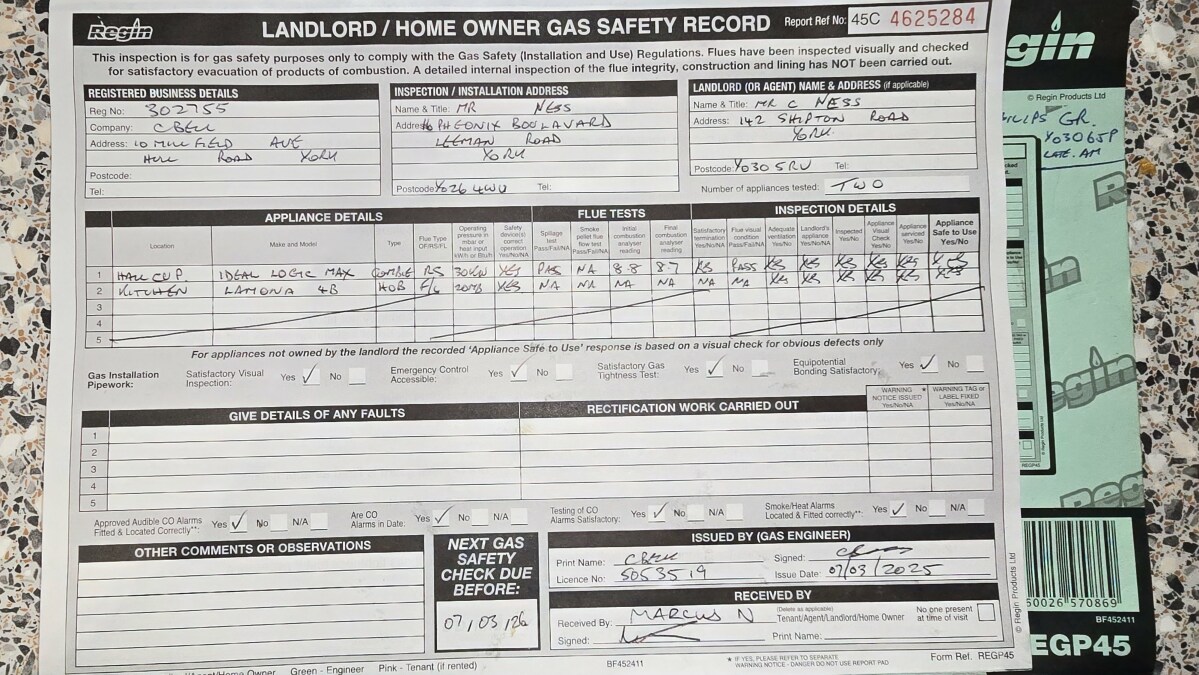 Regin
LANDLORD / HOME OWNER GAS SAFETY RECORD
Report Ref No: 45C 4625284
This inspection is for gas safety purposes only to comply with the Gas Safety (Installation and Use) Regulations. Flues have been inspected visually and checked
for satisfactory evacuation of products of combustion. A detailed internal inspection of the flue integrity, construction and lining has NOT been carried out.
REGISTERED BUSINESS DETAILS
Reg No: 302755
Company: C BELL
Address: 10 MILL FIELD AVE
HULL ROAD YORK
Postcode:
Tel:
INSPECTION / INSTALLATION ADDRESS
Name & Title: MR NESS
Address: 16 PHEONIX BOULAVARD
LEEMAN ROAD
YORK
Postcode YO26 4WU Tel:
LANDLORD (OR AGENT) NAME & ADDRESS (if applicable)
Name & Title: MR C NESS
Address: 142 SHIPTON ROAD
YORK
Postcode: YO30 5RU Tel:
Number of appliances tested: TWO
APPLIANCE DETAILS FLUE TESTS INSPECTION DETAILS
Location Make and Model Type Flue Type OF/RS/FL Operating pressure in mbar or heat input kW/h or Btu/h Safety device(s) correct operation Yes/No/NA Spillage test Pass/Fail/NA Smoke pellet flue flow test Pass/Fail/NA Initial combustion analyser reading Final combustion analyser reading Satisfactory termination Yes/No/NA Flue visual condition Pass/Fail/NA Adequate ventilation Yes/No Landlord's appliance Yes/No/NA Inspected Yes/No Appliance Visual Check Yes/No Appliance serviced Yes/No Appliance Safe to Use Yes/No
1 HALL CUP. IDEAL LOGIC MAX COMBIE RS 30KW YES PASS NA 8.8 8.7 YES PASS YES YES YES YES YES YES
2 KITCHEN LAMONA 4B HOB F/L 20MB YES NA NA NA NA NA NA YES YES YES YES YES YES
3
4
5
For appliances not owned by the landlord the recorded 'Appliance Safe to Use' response is based on a visual check for obvious defects only
Gas Installation Pipework: Satisfactory Visual Inspection: Yes ✓ No Emergency Control Accessible: Yes ✓ No Satisfactory Gas Tightness Test: Yes ✓ No Equipotential Bonding Satisfactory: Yes ✓ No
GIVE DETAILS OF ANY FAULTS RECTIFICATION WORK CARRIED OUT WARNING NOTICE ISSUED Yes/No/NA * WARNING TAG or LABEL FIXED Yes/No/NA
1
2
3
4
5
Approved Audible CO Alarms Fitted & Located Correctly**: Yes ✓ No N/A Are CO Alarms in Date: Yes ✓ No N/A Testing of CO Alarms Satisfactory: Yes ✓ No N/A Smoke/Heat Alarms Located & Fitted correctly**: Yes ✓ No N/A
OTHER COMMENTS OR OBSERVATIONS
NEXT GAS
SAFETY
CHECK DUE
BEFORE:
07/03/26
ISSUED BY (GAS ENGINEER)
Print Name: C BELL Signed:
Licence No: 5053519 Issue Date: 07/03/2025
RECEIVED BY
Received By: MARCUS N (Delete as applicable) Tenant/Agent/Landlord/Home Owner No one present at time of visit
Signed: Print Name:
/Agent/Home Owner Green - Engineer Pink - Tenant (if rented)
BF452411
* IF YES, PLEASE REFER TO SEPARATE
WARNING NOTICE - DANGER DO NOT USE REPORT PAD
Form Ref. REGP45
© Regin Products Ltd
gin
© Regin Products Ltd
GR.
YO30 6SP
LATE. AM
REGP45
Regin
50026 570869
BF452411
EGP45